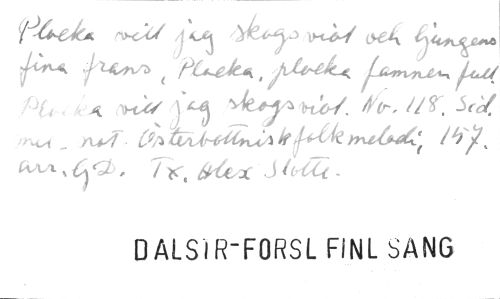 Plocka vill jag skogsviol och ljungens
fina frans, Plocka, plocka famnen full.
Plocka vill jag skogsviol. No. 118. Sid.
mel. not. Österbottnisk folkmelodi, 157.
arr. G.D. Tx. Alex Slotte.
DALSTR-FORSL FINL SANG